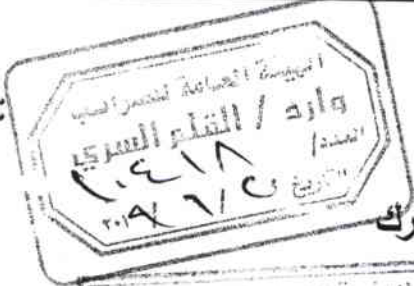 الهيئة العامة للضرائب
وارد / القلم السري
العدد/ ١٠٤١٨
التاريخ ٢٠١٩/٦/
رك